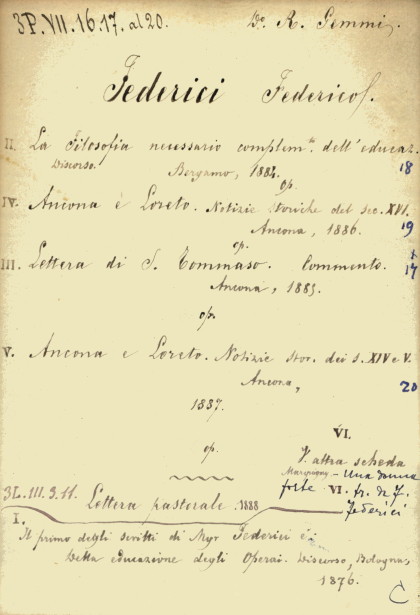 3P.VII.16.17. al 20.
R. Gemmi.
Federici Federico f.
II. La Filosofia necessario complem.to dell'educaz.
Discorso. Bergamo, 1884. 18
op.
IV. Ancona e Loreto. Notizie storiche del sec. XVI.
Ancona, 1886. 19
op.
III. Lettera di S. Tommaso. Commento. 17
Ancona, 1885.
op.
V. Ancona e Loreto. Notizie stor. dei s. XIV e V.
Ancona, 20
1887.
op.
VI.
V. altra scheda
Marpigny - Una donna
forte VI. fr. di F.
Federici
3L.III.9.11. Lettera pastorale. 1888
I.
Il primo degli scritti di Mgr Federici è
Della educazione degli Operai. Discorso, Bologna,
1876.
C